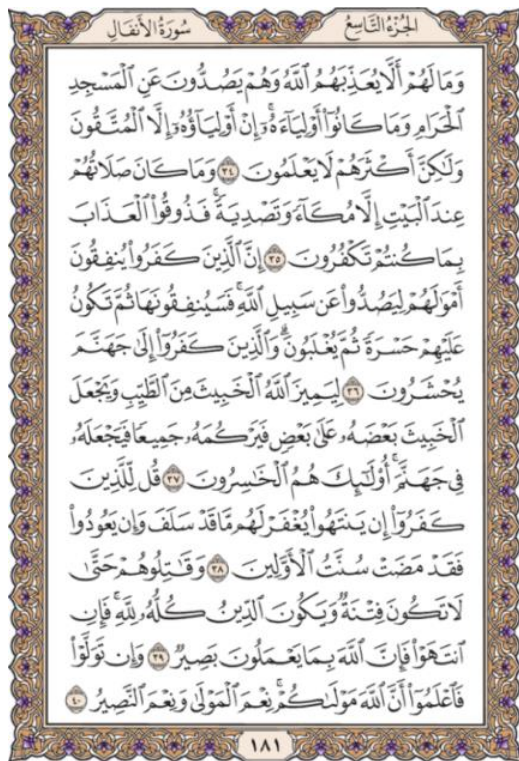 الجُزْءُ التَّاسِعُ
سُورَةُ الأَنْفَالِ
وَمَا لَهُمْ أَلَّا يُعَذِّبَهُمُ ٱللَّهُ وَهُمْ يَصُدُّونَ عَنِ ٱلْمَسْجِدِ
ٱلْحَرَامِ وَمَا كَانُوٓا۟ أَوْلِيَآءَهُۥٓ ۚ إِنْ أَوْلِيَآؤُهُۥٓ إِلَّا ٱلْمُتَّقُونَ
وَلَٰكِنَّ أَكْثَرَهُمْ لَا يَعْلَمُونَ ٣٤ وَمَا كَانَ صَلَاتُهُمْ
عِندَ ٱلْبَيْتِ إِلَّا مُكَآءً وَتَصْدِيَةً ۚ فَذُوقُوا۟ ٱلْعَذَابَ
بِمَا كُنتُمْ تَكْفُرُونَ ٣٥ إِنَّ ٱلَّذِينَ كَفَرُوا۟ يُنفِقُونَ
أَمْوَٰلَهُمْ لِيَصُدُّوا۟ عَن سَبِيلِ ٱللَّهِ ۚ فَسَيُنفِقُونَهَا ثُمَّ تَكُونُ
عَلَيْهِمْ حَسْرَةً ثُمَّ يُغْلَبُونَ ۗ وَٱلَّذِينَ كَفَرُوٓا۟ إِلَىٰ جَهَنَّمَ
يُحْشَرُونَ ٣٦ لِيَمِيزَ ٱللَّهُ ٱلْخَبِيثَ مِنَ ٱلطَّيِّبِ وَيَجْعَلَ
ٱلْخَبِيثَ بَعْضَهُۥ عَلَىٰ بَعْضٍ فَيَرْكُمَهُۥ جَمِيعًا فَيَجْعَلَهُۥ
فِى جَهَنَّمَ ۚ أُو۟لَٰٓئِكَ هُمُ ٱلْخَٰسِرُونَ ٣٧ قُل لِّلَّذِينَ
كَفَرُوٓا۟ إِن يَنتَهُوا۟ يُغْفَرْ لَهُم مَّا قَدْ سَلَفَ وَإِن يَعُودُوا۟
فَقَدْ مَضَتْ سُنَّتُ ٱلْأَوَّلِينَ ٣٨ وَقَٰتِلُوهُمْ حَتَّىٰ
لَا تَكُونَ فِتْنَةٌ وَيَكُونَ ٱلدِّينُ كُلُّهُۥ لِلَّهِ ۚ فَإِنِ
ٱنتَهَوْا۟ فَإِنَّ ٱللَّهَ بِمَا يَعْمَلُونَ بَصِيرٌ ٣٩ وَإِن تَوَلَّوْا۟
فَٱعْلَمُوٓا۟ أَنَّ ٱللَّهَ مَوْلَىٰكُمْ ۚ نِعْمَ ٱلْمَوْلَىٰ وَنِعْمَ ٱلنَّصِيرُ ٤٠
١٨١